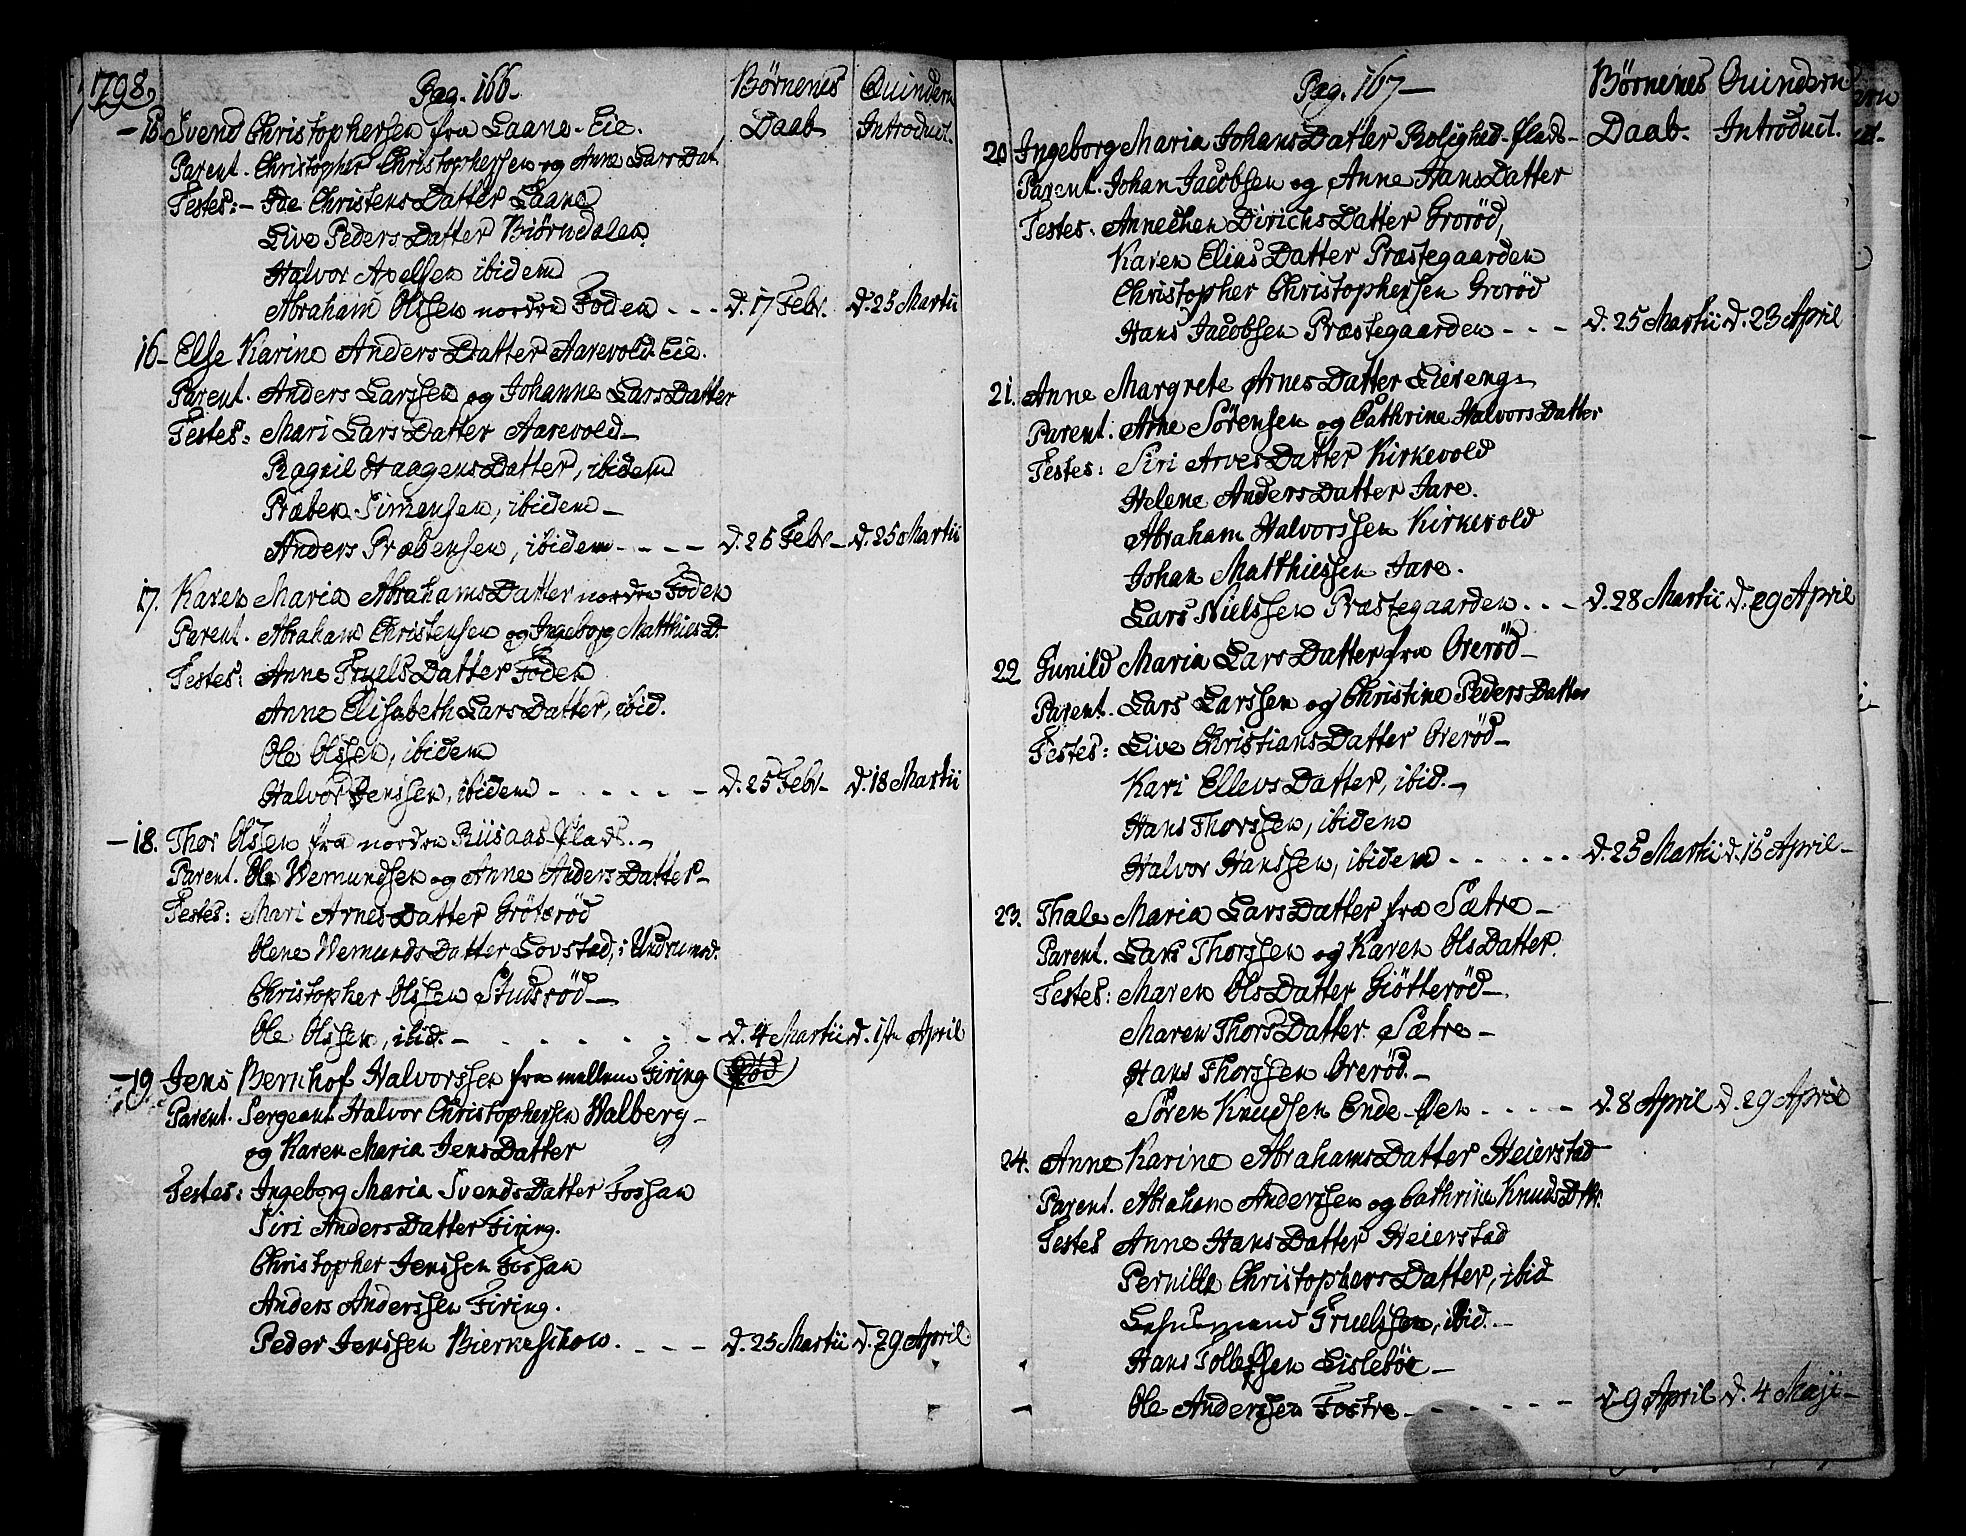 1798.
Pag. 166.
Børnenes Daab
Quindern Introduct.
15. Svend Christophersen fra Laane-Eie.
Parent. Christopher Christophersen og Anne LarsDat.
Testes:- Ide ChristensDatter Laane
Live PedersDatter Biørndalen
Halvor Apelsen ibidem
Abraham Olssen nordre Foden - - - d. 17 Febr. d. 25 Martii
16- Else Karine AndersDatter Aarevold-Eie.
Parent. Anders Larssen og Johanne LarsDatter
Testes: Mari LarsDatter Aarevold-
Ragnil HaagensDatter, ibidem
Præben Simensen, ibidem-
Anders Præbensen, ibidem - - - - d. 25 Febr- d. 25 Martii
17. Karen Maria AbrahamsDatter nordre Foden
Parent. Abraham Christensen og Ingeborg MatthiesD.
Testes: Anne TruelsDatter Foden
Anne Elisabeth LarsDatter, ibid.
Ole Olssen, ibidem
Halvor Jenssen, ibidem - - - - - - d. 25 Febr- d. 18 Martii
-18. Thor Olssen fra nordre Riisaas-Plads.-
Parent. Ole Wemundsen og Anne AndersDatter-
Testes: Mari ArnesDatter Grötsröd
Olene WemundsDatter Lovstad, i Undrumsd.
Christopher Olssen Studsröd-
Ole Olssen, ibid.- - - - - - - d. 4 Martii d. 1ste April
-19. Jens Bernhof Halvorssen fra mellem Firing
Parent. Sergeant Halvor Christophersen Walberg-
og Karen Maria JensDatter
Testes: Ingeborg Maria SvendsDatter Fossan
Siri AndersDatter Firing.
Christopher Jenssen Fossan
Anders Anderssen Firing.
Peder Jenssen Bierkeschow. - - - d. 25 Martii d. 29 April
Pag. 167-
Børnenes Daab.
Quindern Introduct.
20 Ingeborg Maria JohansDatter Bolighed-Plads-
Parent. Johan Jacobsen og Anne HansDatter
Testes. Annechen DirichsDatter Groröd,
Karen EliasDatter Præstegaarden
Christopher Christophersen Groröd
Hans Jacobsen Præstegaarden - - - d. 25 Martii d. 23 April
21. Anne Margrete ArnesDatter Liereng-
Parent. Arne Sörensen og Cathrine HalvorsDatter
Testes: Siri ArvesDatter Kirkevold
Helene AndersDatter Jare.
Abraham Halvorssen Kirkevold
Johan Matthiessen Jare.
Lars Nielssen Præstegaarden. - - d. 28 Martii d. 29 April
22 Gunild Maria LarsDatter fra Oreröd-
Parent. Lars Larssen og Christine PedersDatter
Testes: Live ChristiansDatter Orerød-
Kari EllevsDatter, ibid.-
Hans Thorssen, ibidem
Halvor Hanssen, ibidem - - - - - - d. 25 Martii d. 15 April-
23. Thale Maria LarsDatter fra Sætre-
Parent. Lars Thorssen og Karen OlsDatter.
Testes: Maren OlsDatter Giötteröd-
Maren ThorsDatter Sætre-
Hans Thorssen Orerød.-
Sören Knudsen - - - - d. 8 April d. 29 April
24. Anne Karine AbrahamsDatter Heierstad
Parent. Abraham Anderssen og Cathrine KnudsDttr.
Testes Anne HansDatter Heierstad
Pernille ChristophersDatter, ibid
Truelssen, ibid.-
Hans Tollefsen Lislebøe-
Ole Anderssen Fostre- - - - - - d. 9 April d. 4 Maji-